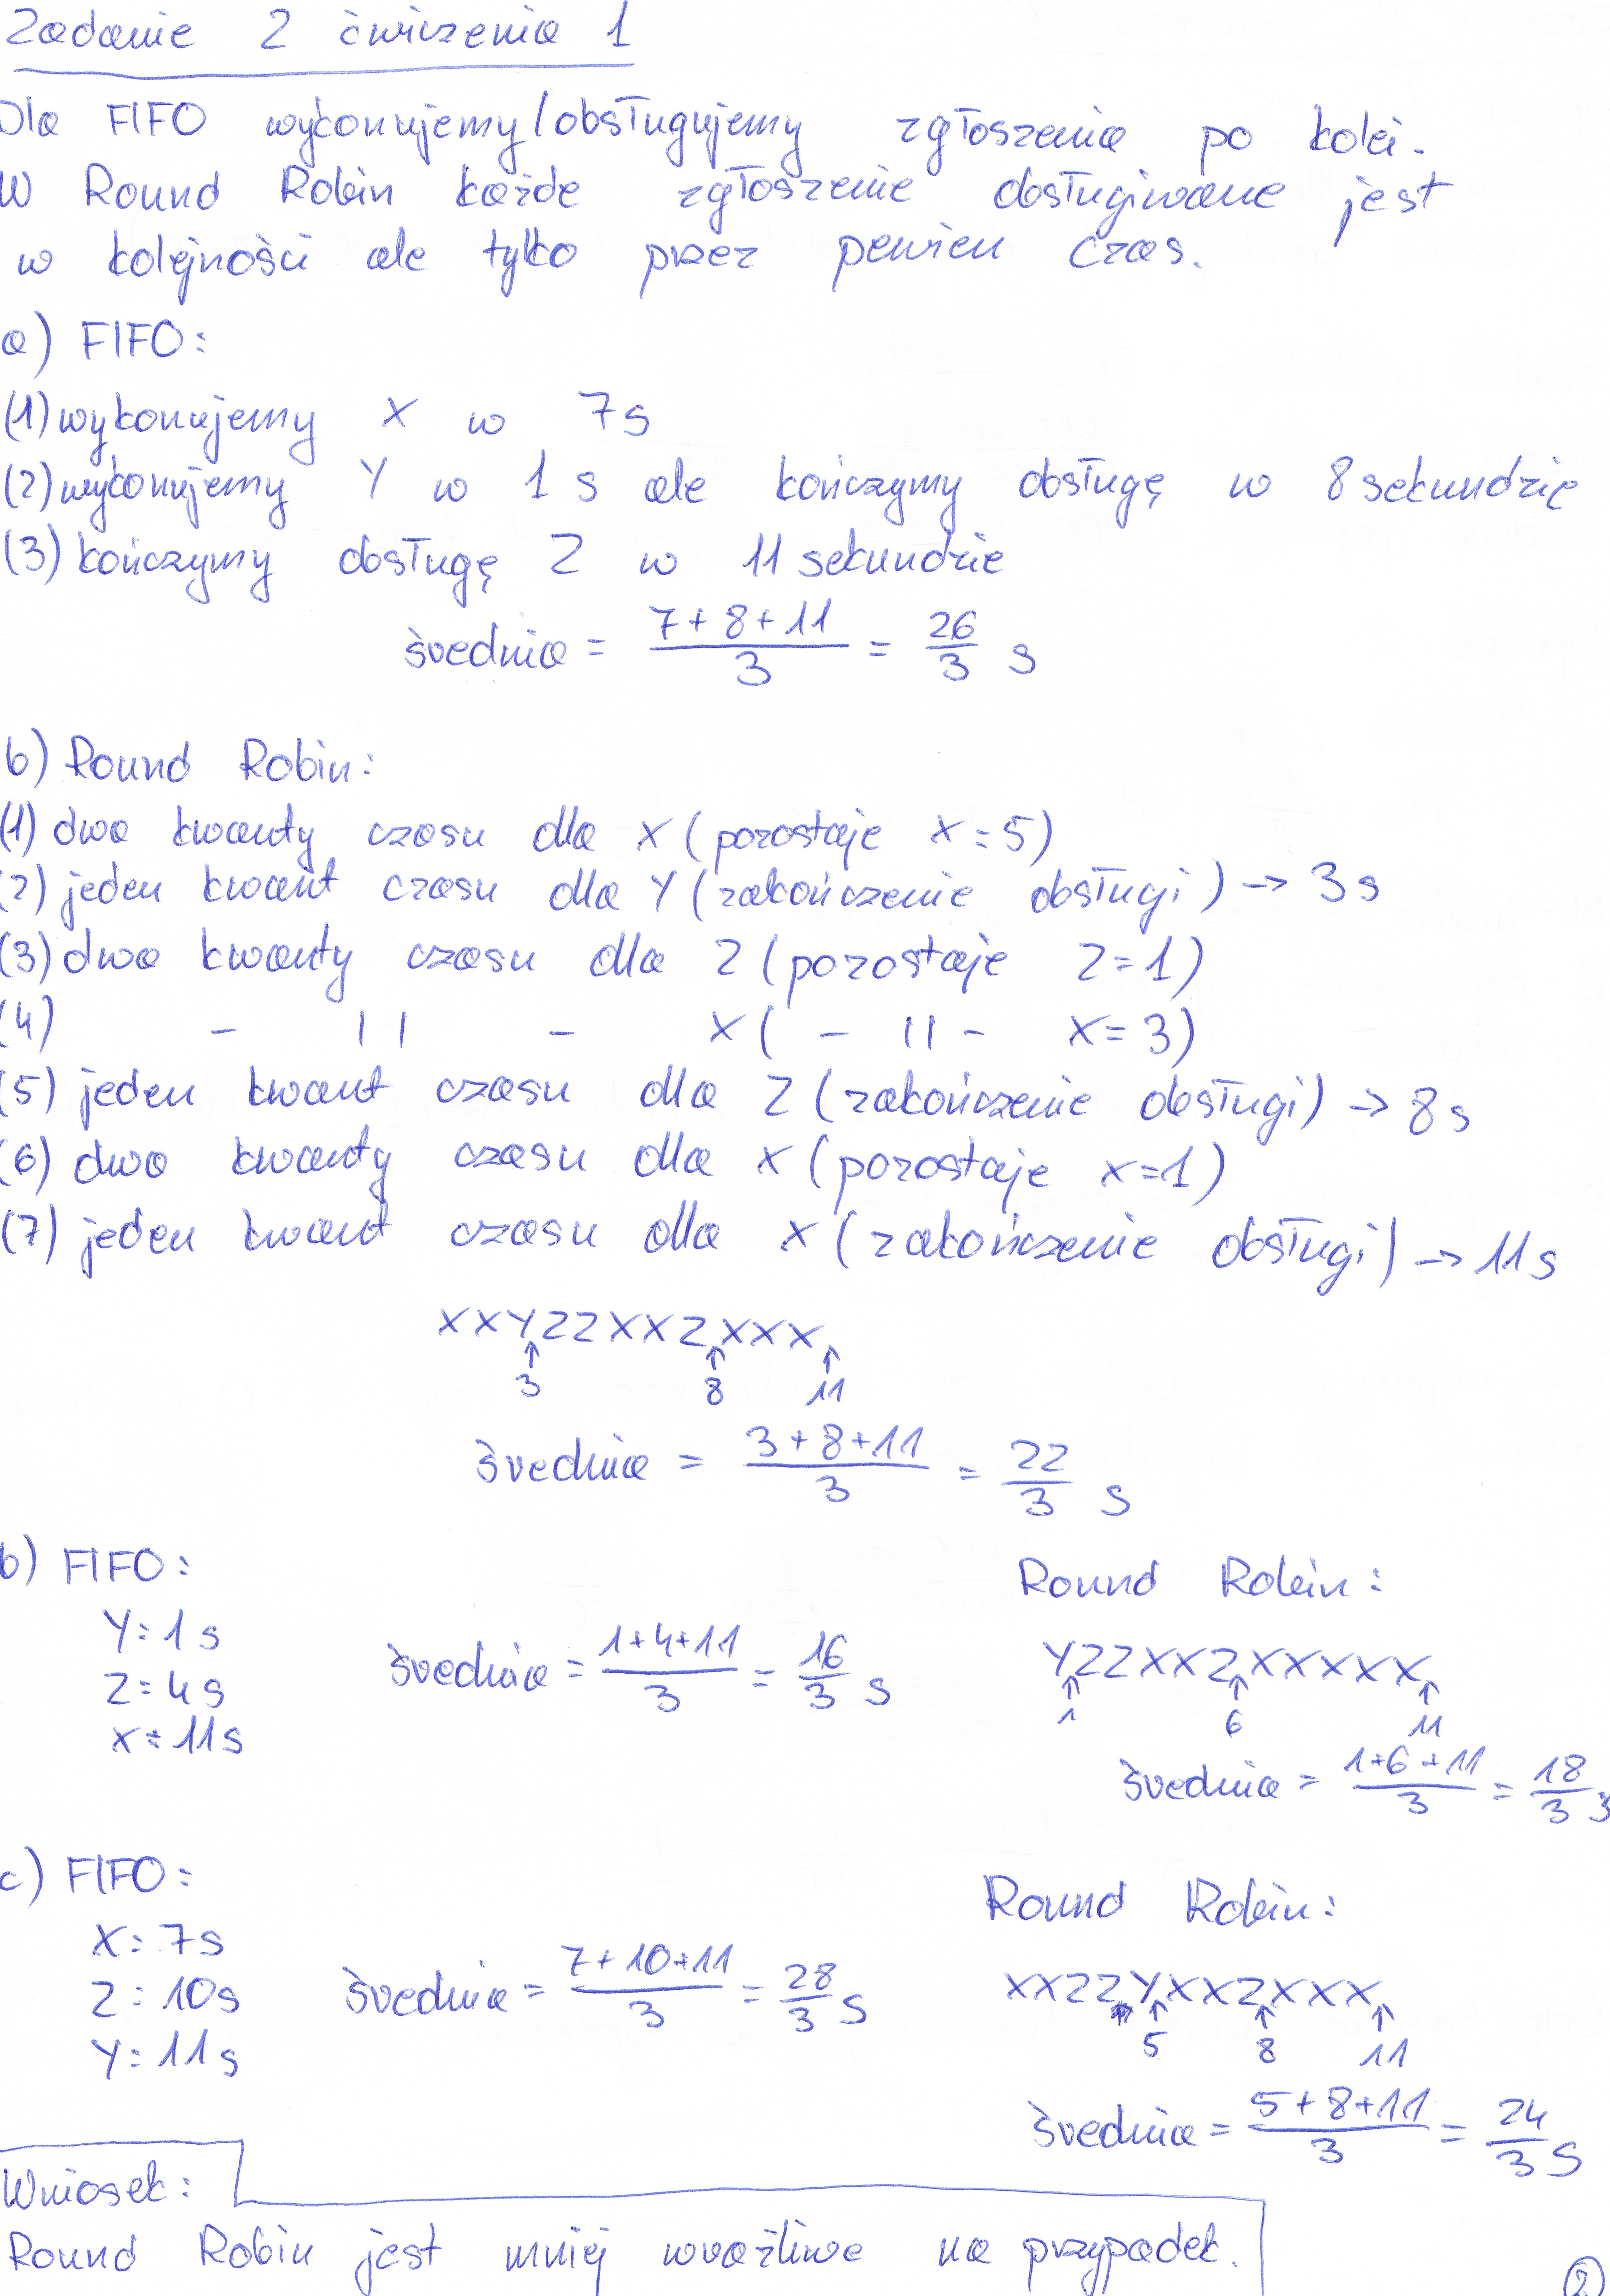 Zadanie 2 ćwiczenia 1
Dla FIFO wykonujemy/obsługujemy zgłoszenia po kolei.
W Round Robin każde zgłoszenie obsługiwane jest
w kolejności ale tylko przez pewien czas.
a) FIFO:
(1) wykonujemy X w 7s
(2) wykonujemy Y w 1 s ale kończymy obsługę w 8 sekundzie
(3) kończymy obsługę Z w 11 sekundzie
średnia = (7+8+11)/3 = 26/3 s
b) Round Robin:
(1) dwa kwanty czasu dla X (pozostaje X=5)
(2) jeden kwant czasu dla Y (zakończenie obsługi) → 3s
(3) dwa kwanty czasu dla Z (pozostaje Z=1)
(4) - || - X ( - || - X=3)
(5) jeden kwant czasu dla Z (zakończenie obsługi) → 8s
(6) dwa kwanty czasu dla X (pozostaje X=1)
(7) jeden kwant czasu dla X (zakończenie obsługi) → 11s
XXYZZXXZXXX
↑ ↑ ↑
3 8 11
średnia = (3+8+11)/3 = 22/3 s
b) FIFO:
Y: 1s
Z: 4s
X: 11s
średnia = (1+4+11)/3 = 16/3 s
Round Robin:
YZZXXZXXXXX
↑ ↑ ↑
1 6 11
średnia = (1+6+11)/3 = 18/3 s
c) FIFO:
X: 7s
Z: 10s
Y: 11s
średnia = (7+10+11)/3 = 28/3 s
Round Robin:
XXZZYXXZXXX
↑ ↑ ↑
5 8 11
średnia = (5+8+11)/3 = 24/3 s
Wniosek:
Round Robin jest mniej wrażliwe na przypadek.
2